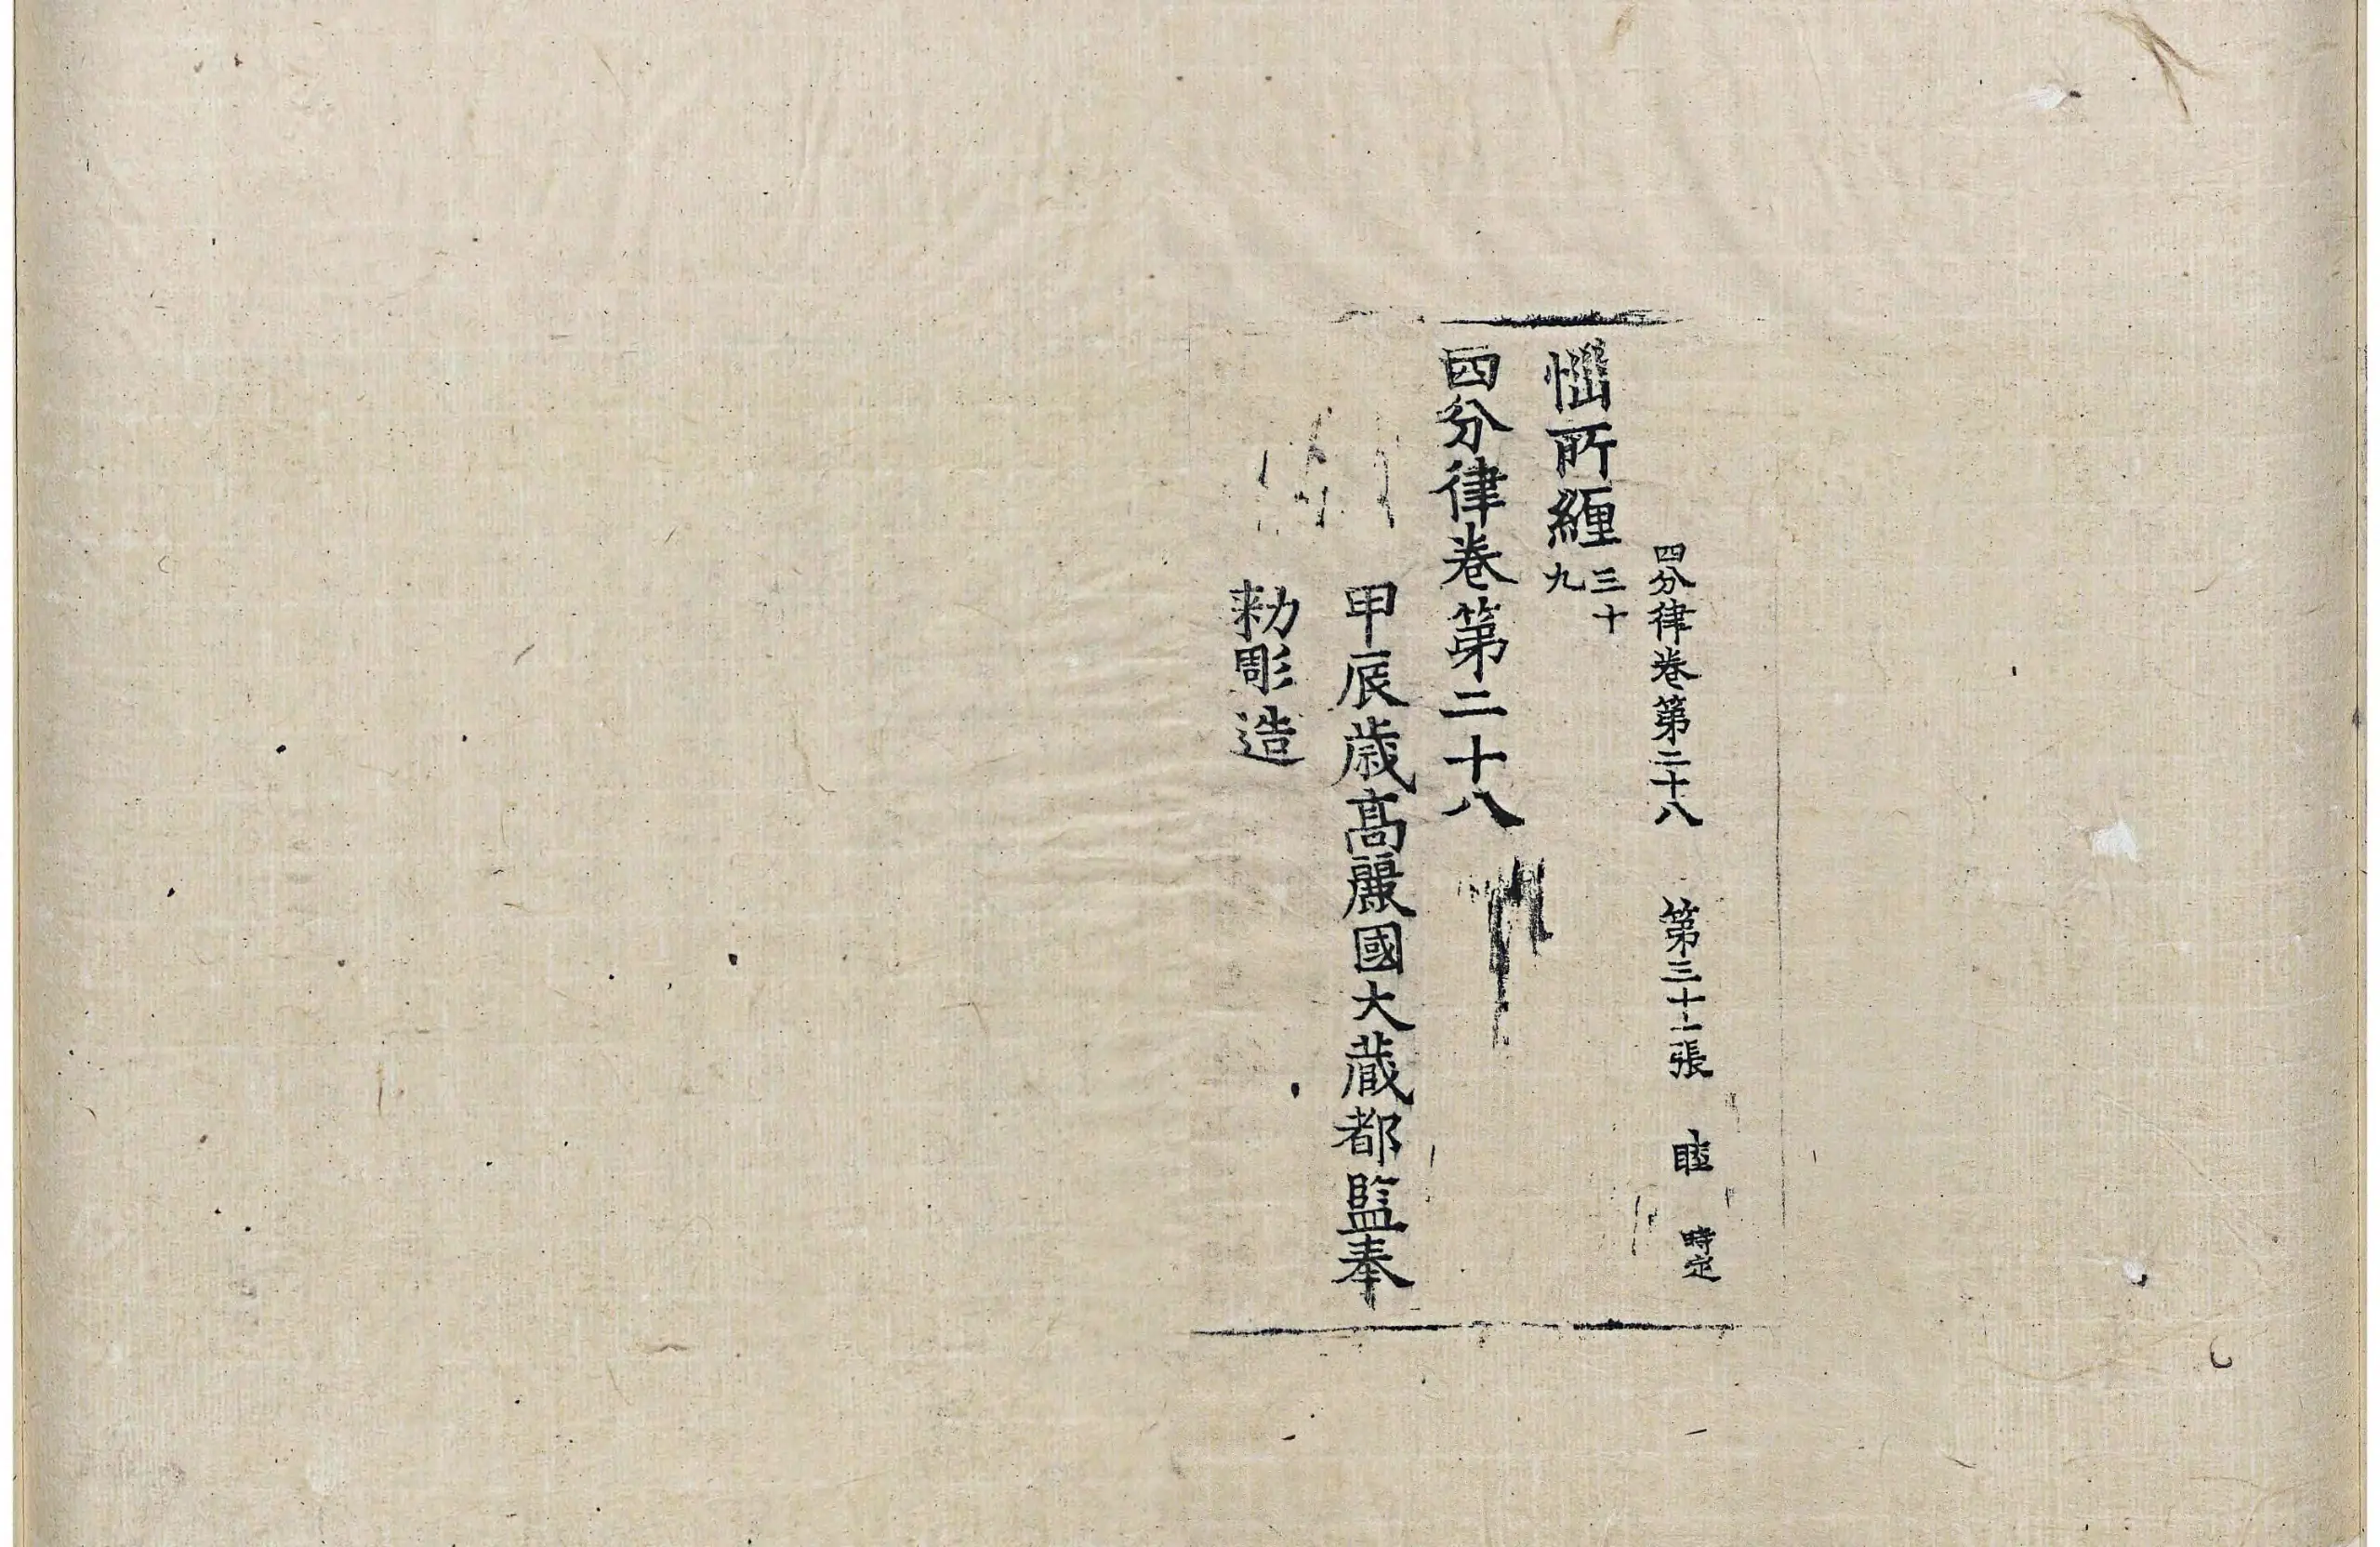 四分律卷第二十八 第三十二張 睦 時定
惱所纏 三十九
四分律卷第二十八
甲辰歳高麗國大藏都監奉
勑彫造